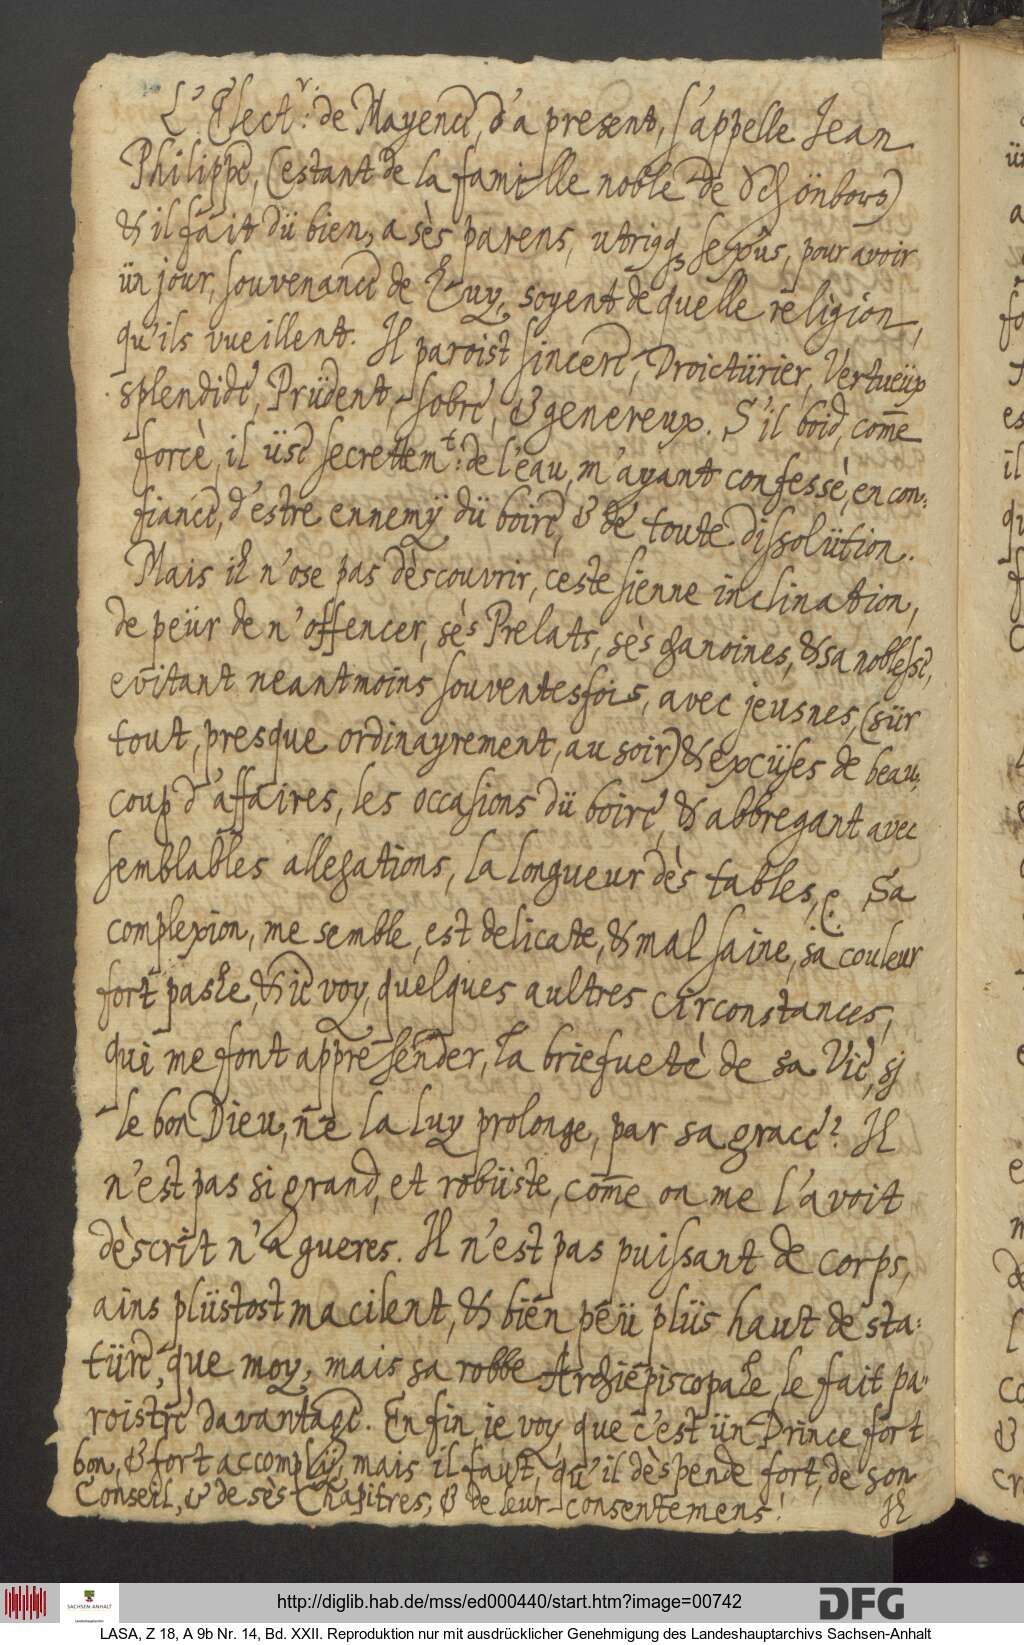 L' Elect.r: de Mayence, d'a present, s'appelle Jean
Philippe, (estant de la famille noble de Schönborn)
& il fait dü bien, a sès parens, utriq₃ sexûs, pour avoir
ün jour, souvenance de Luy, soyent de quelle religion,
qu'ils vueillent. Il paroist sincere, Droictürier, Vertueüx
splendide, Prüdent, sobre, & genereux. S'il boid, com̄e
forcè, il üse secrettem.t: de l'eau, m'ayant confessè, en con-
fiance, d'estre ennemÿ dü boire, & de toute dissolütion.
Mais il n'ose pas dèscouvrir, ceste sienne inclination,
de peür de n'offencer, sès Prelats, sès chanoines, & sa noblesse,
evitant neantmoins souventesfois, avec jeusnes, (sür
tout, presque ordinayrement, au soir) & excüses de beau-
coup d'affaires, les occasions dü boire, & abbregant avec
semblables allegations, la longueur dès tables, &c. Sa
complexion, me semble, est delicate, & mal saine, sa couleur
fort pasle, & ie voy, quelques aultres circonstances,
qui me font apprehender, la briefuetè de sa Vie, sj
le bon Dieu, ne la luy prolonge, par sa grace? Il
n'est pas si grand, et robüste, com̄e on me l'avoit
dèscrit n'a gueres. Il n'est pas puissant de corps,
ains plüstost macilent, & bien peü plüs haut de sta-
türe, que moy, mais sa robbe Archiepiscopale, le fait pa-
roistre davantage. En fin ie voy, que c'est ün Prince fort
bon, & fort accomply, mais il faut, qu'il dèspende fort, de son
Conseil, & de sès Chapitres, & de leur consentemens!
Il
http://diglib.hab.de/mss/ed000440/start.htm?image=00742
SACHSEN-ANHALT
DFG
LASA, Z 18, A 9b Nr. 14, Bd. XXII. Reproduktion nur mit ausdrücklicher Genehmigung des Landeshauptarchivs Sachsen-Anhalt